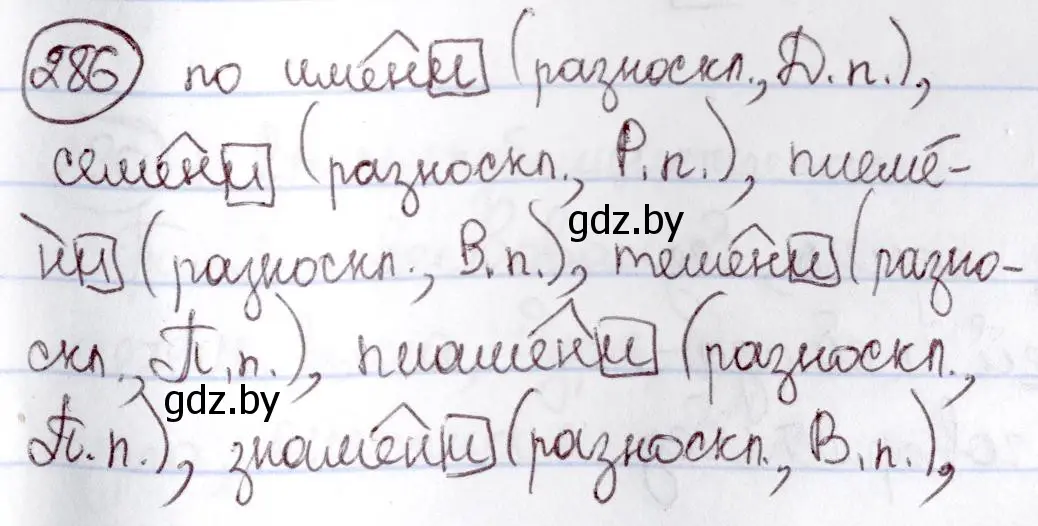 286 по имени (разноскл., Д.п.),
семени (разноскл., Р.п.), племе-
ни (разноскл., В.п.), темени (разно-
gdz.by
скл., П.п.), пламени (разноскл.,
gdz.by
П.п.), знамени (разноскл., В.п.),